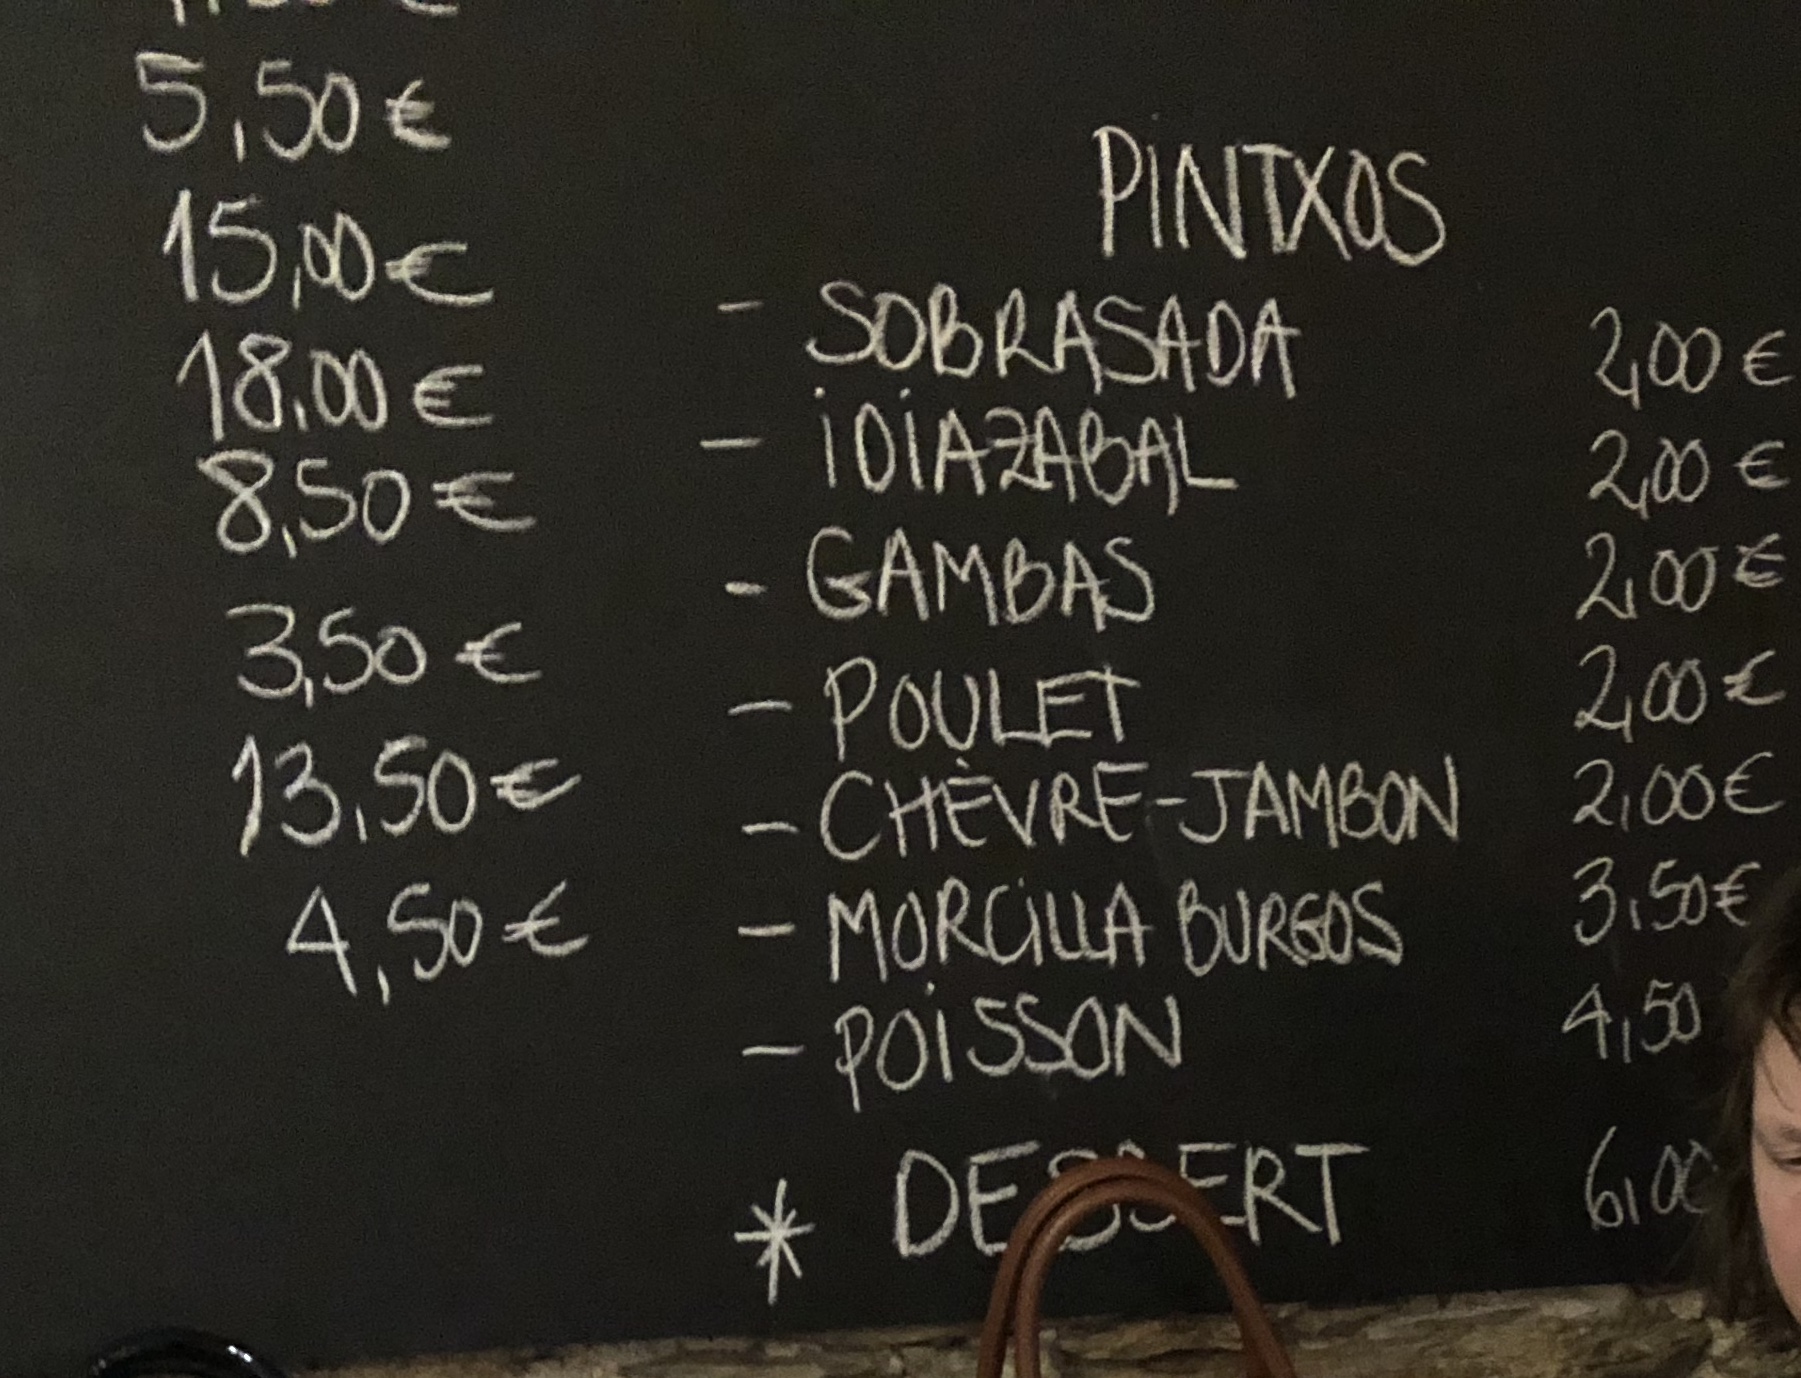 5,50 €
15,00 €
18.00 €
8,50 €
3,50 €
13,50 €
4,50 €
PINTXOS
- SOBRASADA 2,00 €
- iDiAZABAL 2,00 €
- GAMBAS 2,00 €
- POULET 2,00 €
- CHÈVRE-JAMBON 2,00 €
- MORCiLLA BURGOS 3,50 €
- POiSSON 4,50
* DESSERT 6,00